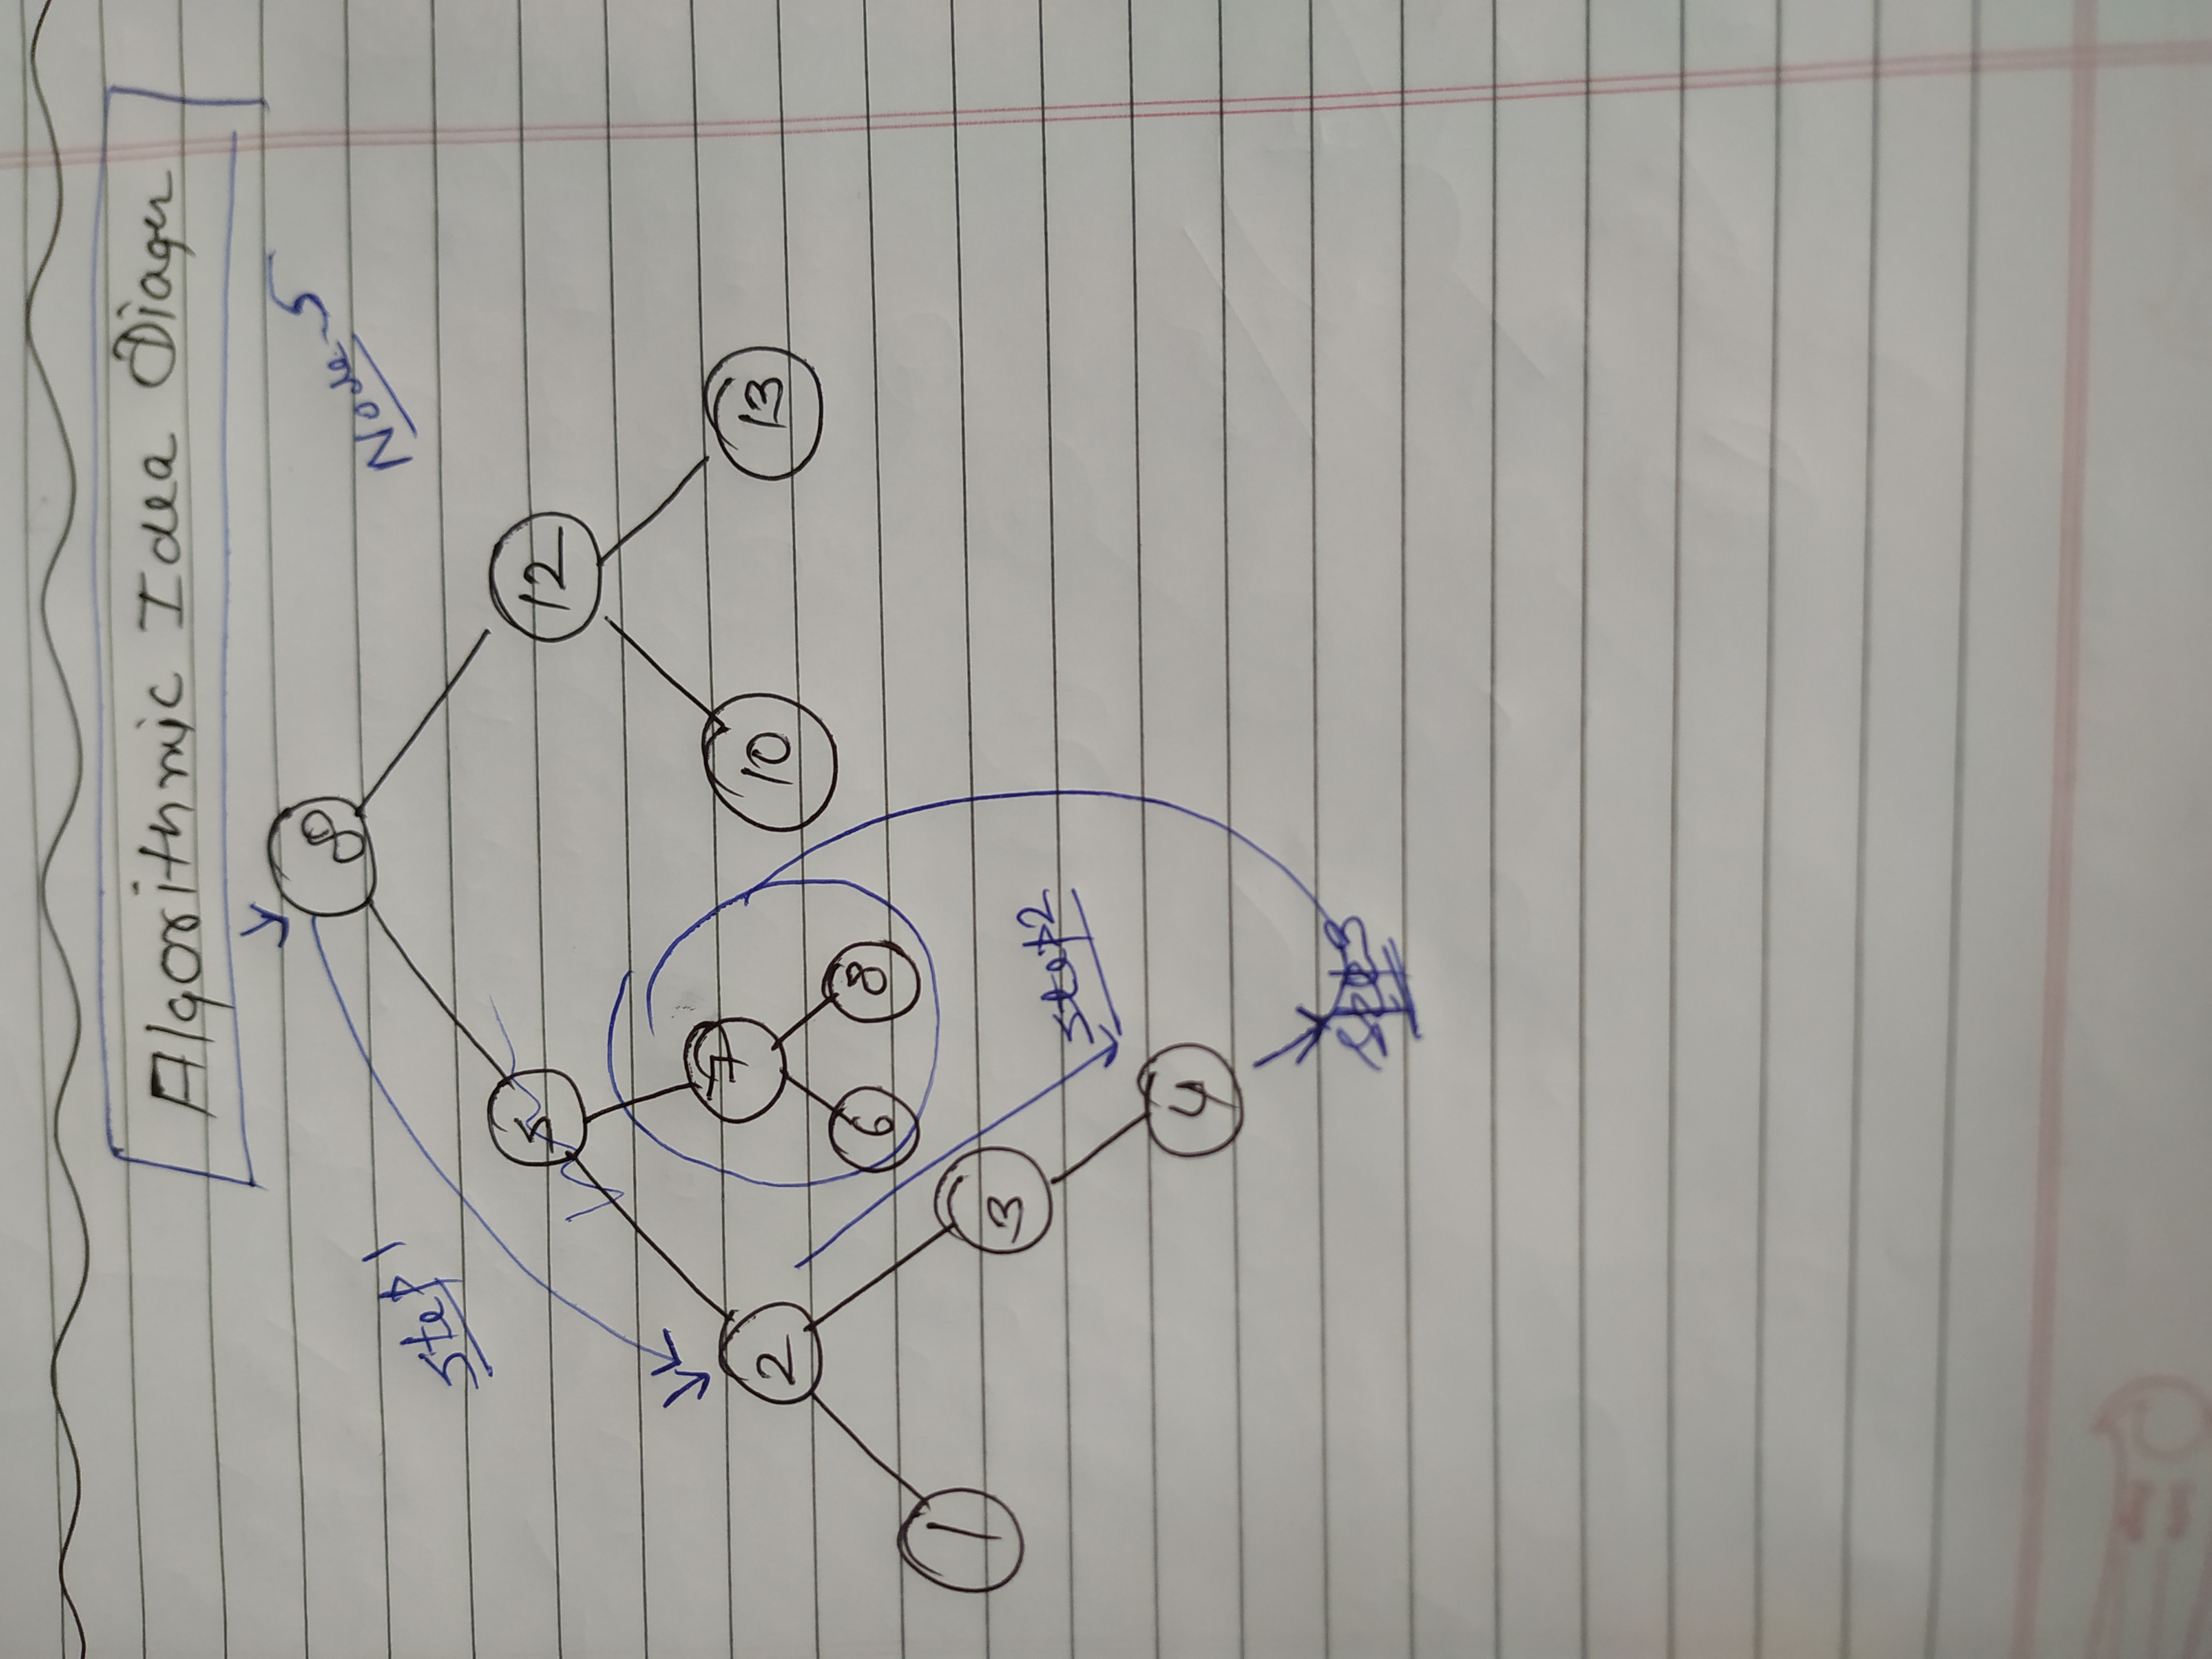 Algorithmic Idea Diager
8
Node-5
Step 1
5
12
2
7
10
13
6
8
1
3
Step2
4